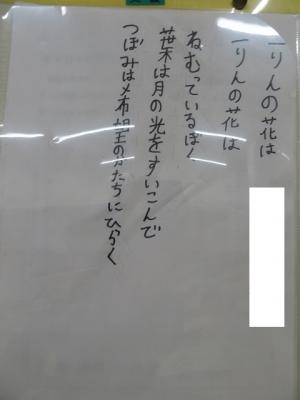 一りんの花は
一りんの花は
ねむっているぼく
葉は月の光をすいこんで
つぼみは希望のかたちにひらく